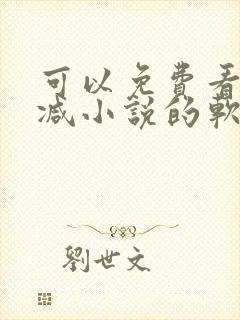 可以免費看
减小説的軟
劉世文